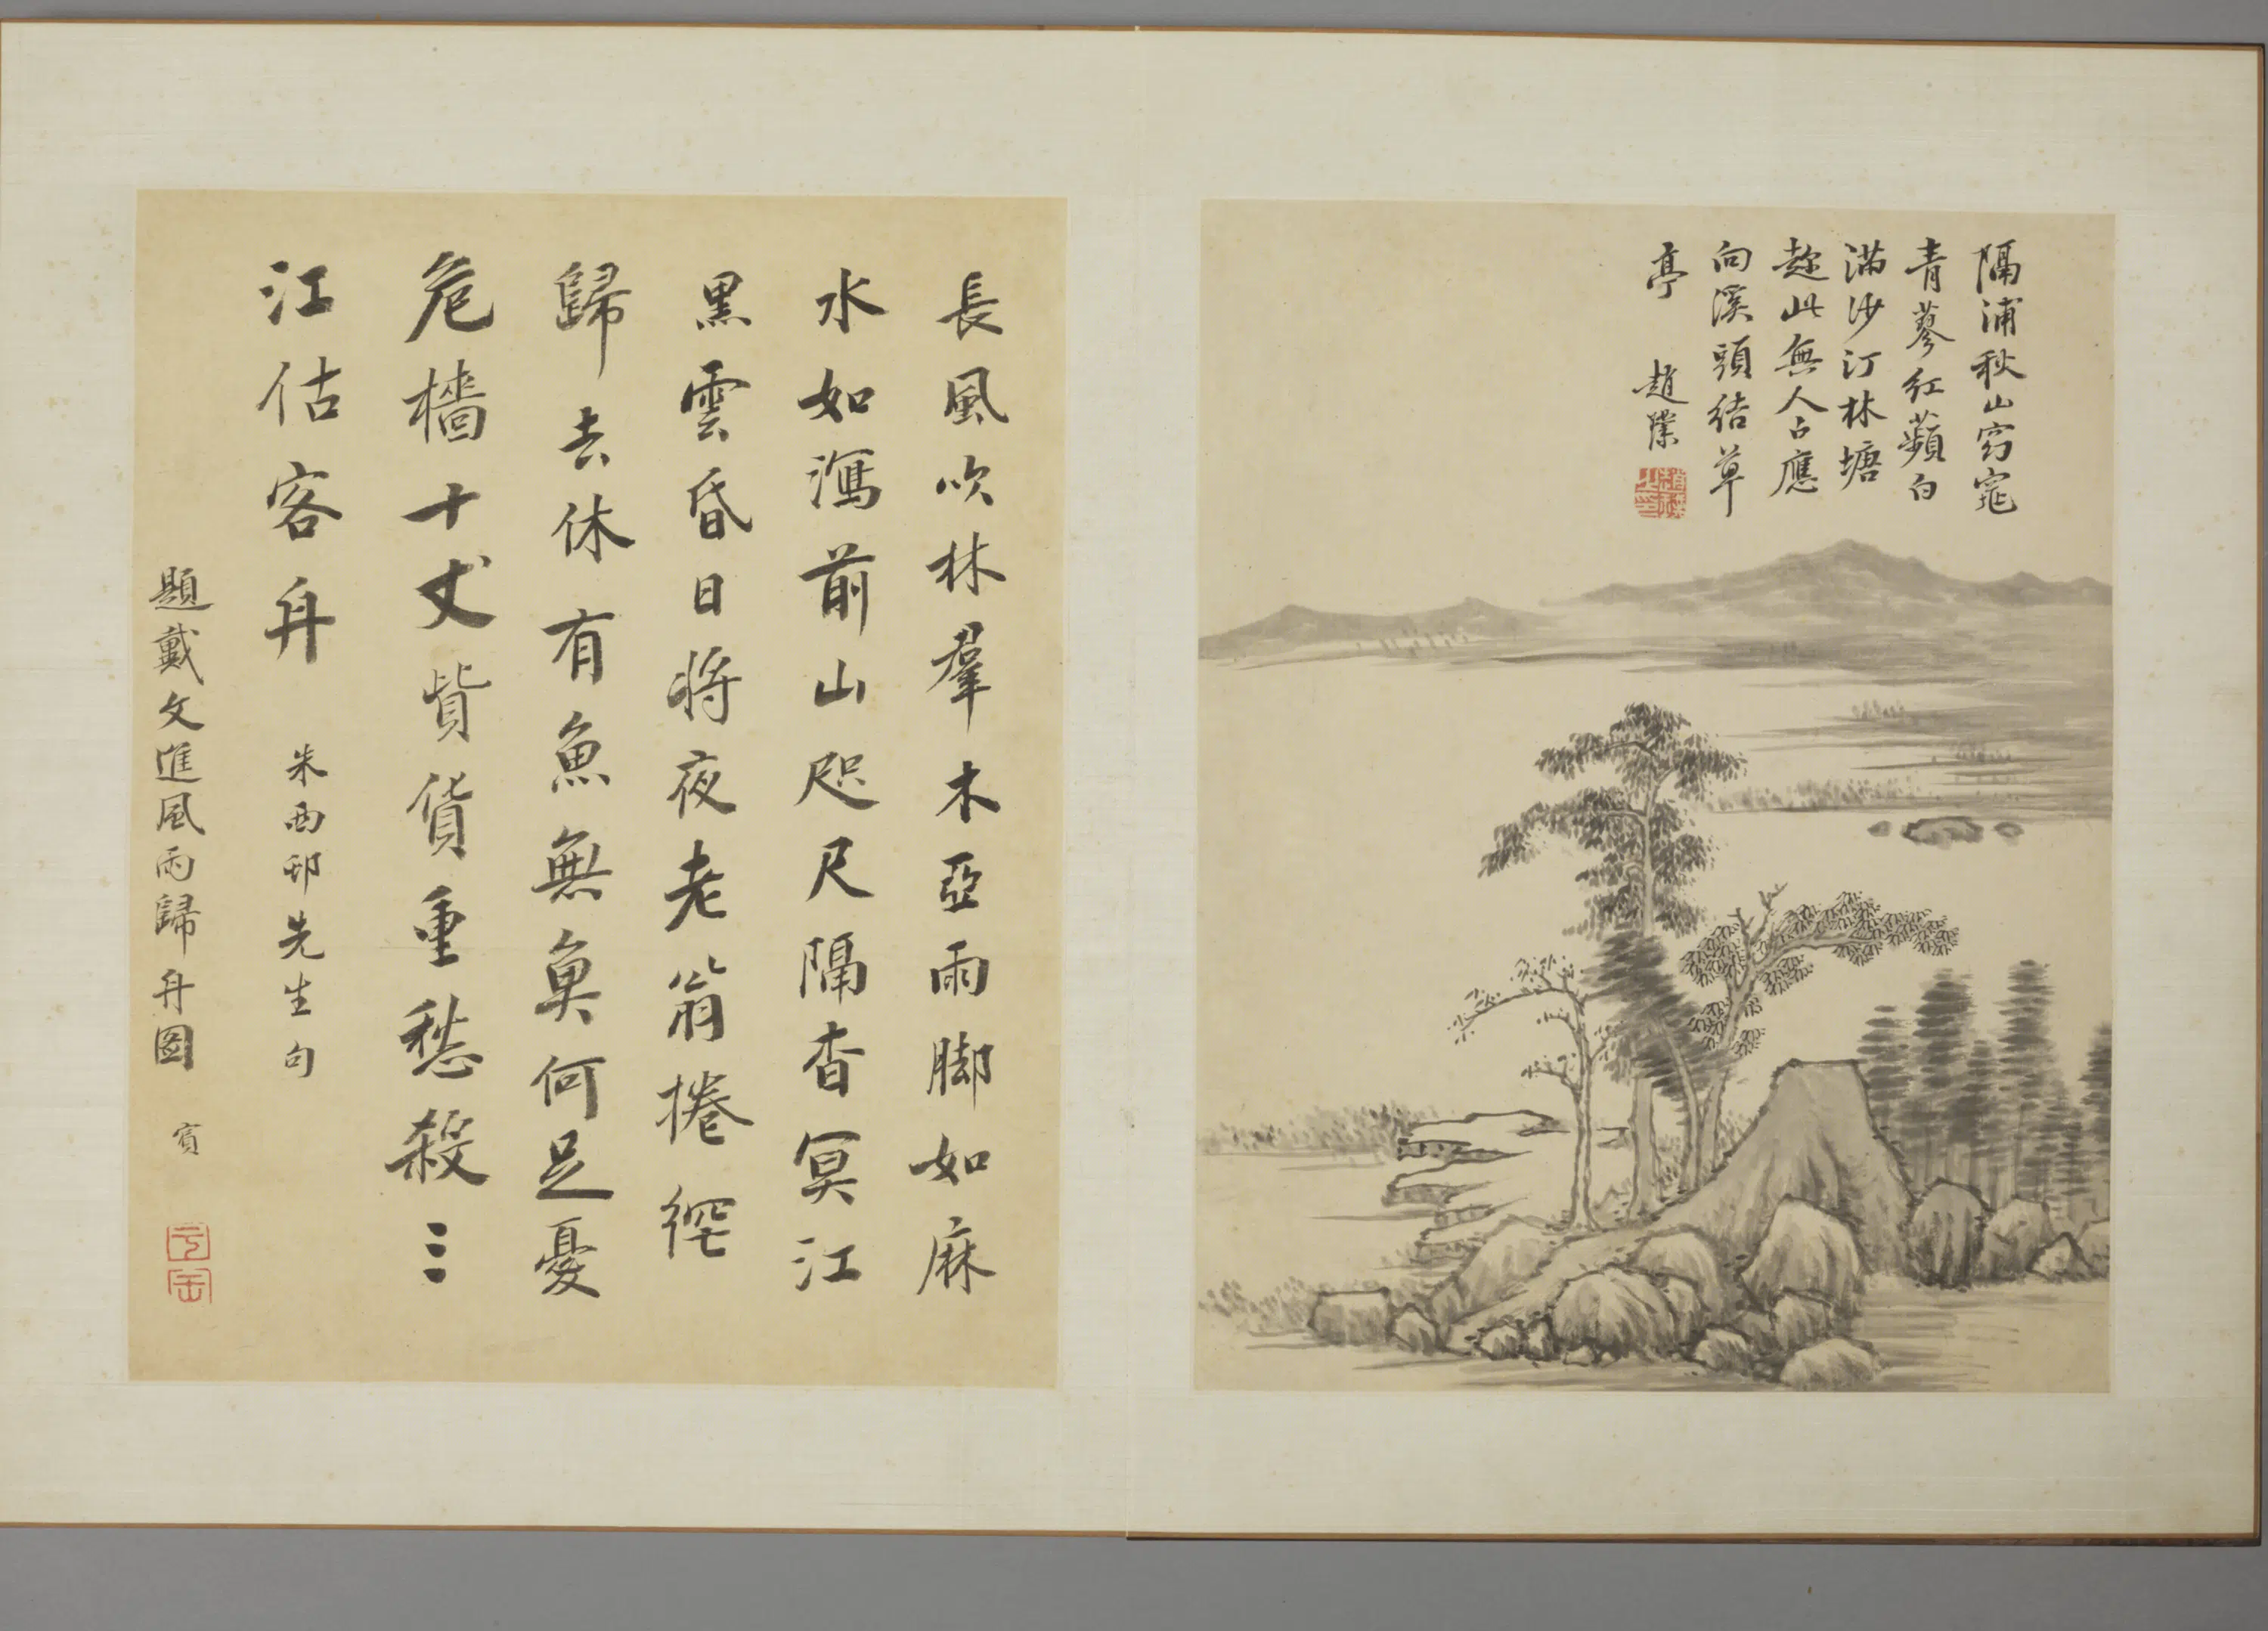 隔浦秋山窈窕
青蓼紅蘋白
滿沙汀林塘
趁此無人占應
向溪頭結草
亭 趙
長風吹林羣木亞雨脚如麻
水如瀉前山咫尺隔杳冥江
黑雲昏日將夜老翁捲
歸去休有魚無魚何足憂
危檣十丈貲貨重愁殺三
江估客舟 朱西邨先生句
題戴文進風雨歸舟圖 賓